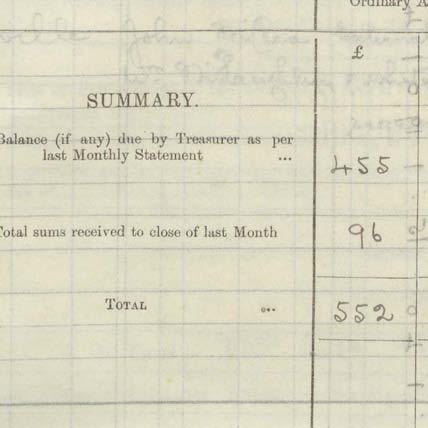 Ordinary A
£
SUMMARY.
Balance (if any) due by Treasurer as per
last Monthly Statement ... 455
Total sums received to close of last Month 96
TOTAL ... 552